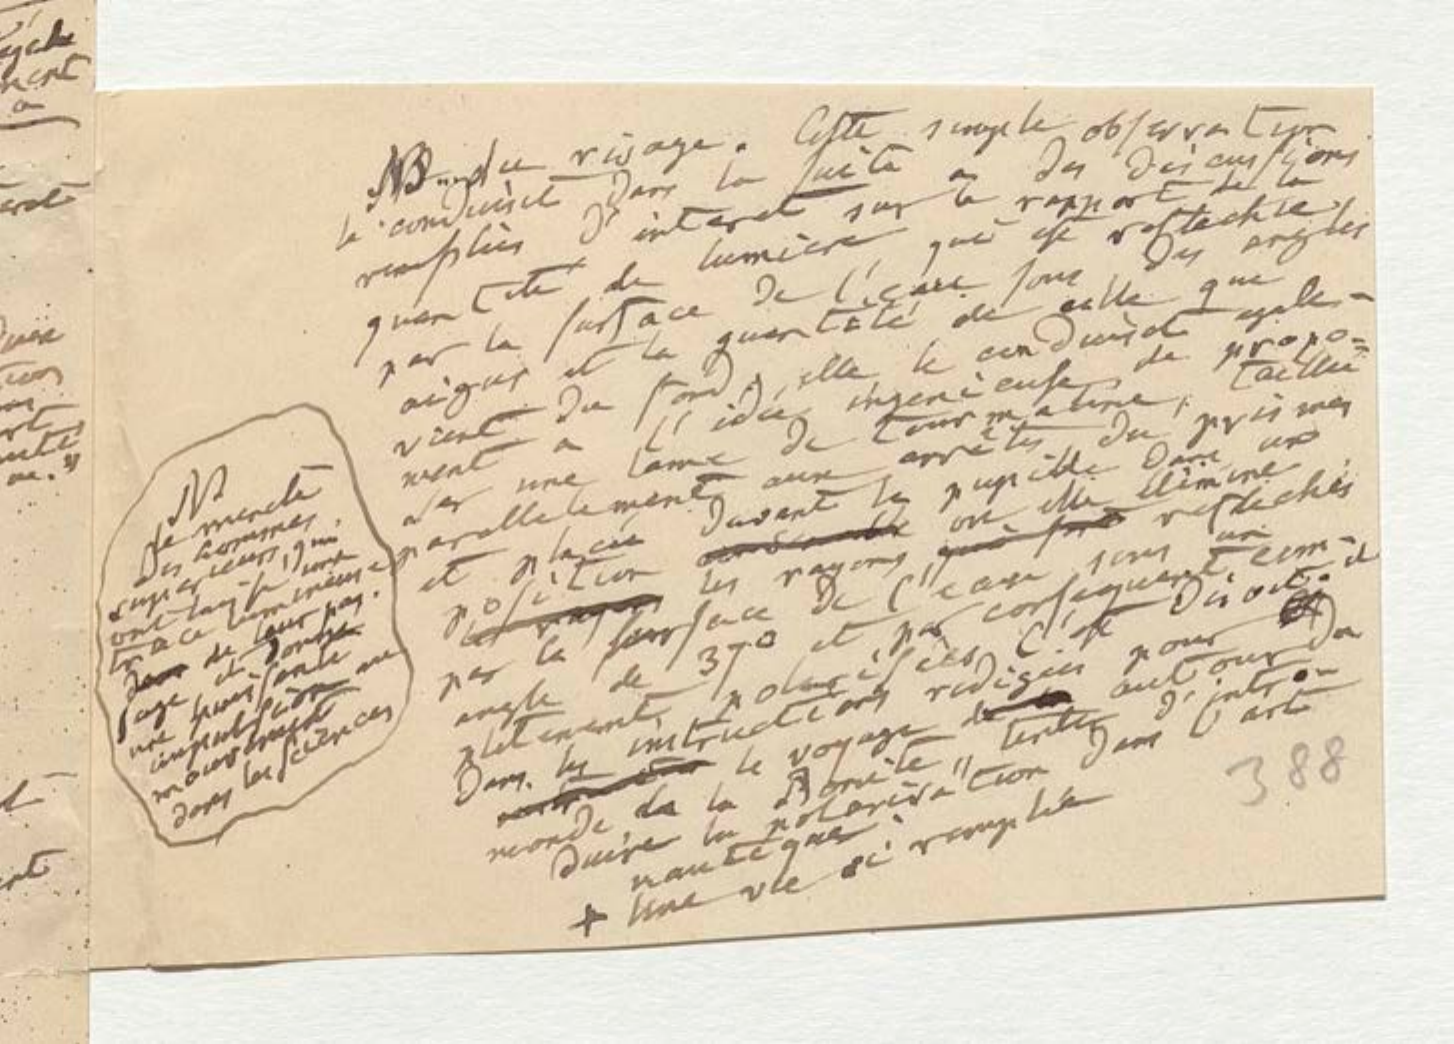 NB du rivage. Cette simple observation
le conduisit dans la suite a des discussions
remplies d'interet sur le rapport de la
quantité de lumière, qui est reflechie
par la surface de l'eau sous des angles
aigus et la quantité de celle que
vient du fond, elle le conduisit egale-
ment a l'idée ingenieuse de propo-
ser une lame de tourmaline, taillée
parallelement aux arrêtes du prismes
et placée devant la pupille dans une
position où elle élimine
les rayons reflechis
par la surface de l'eau sous un
angle de 37° et par consequent com-
pletement polarisés. C'est disoit-il
dans les instructions redigées pour
le voyage autour du
monde de la Bonite, tenter d'intro-
duire la polarisation dans l'art
nautique.
+ Une vie si remplie
388
N
le merite
des hommes
superieurs, qui
ont laissé une
trace lumineuse
de leur pas-
sage et donné
une puissante
impulsion au
mouvement
dans les sciences